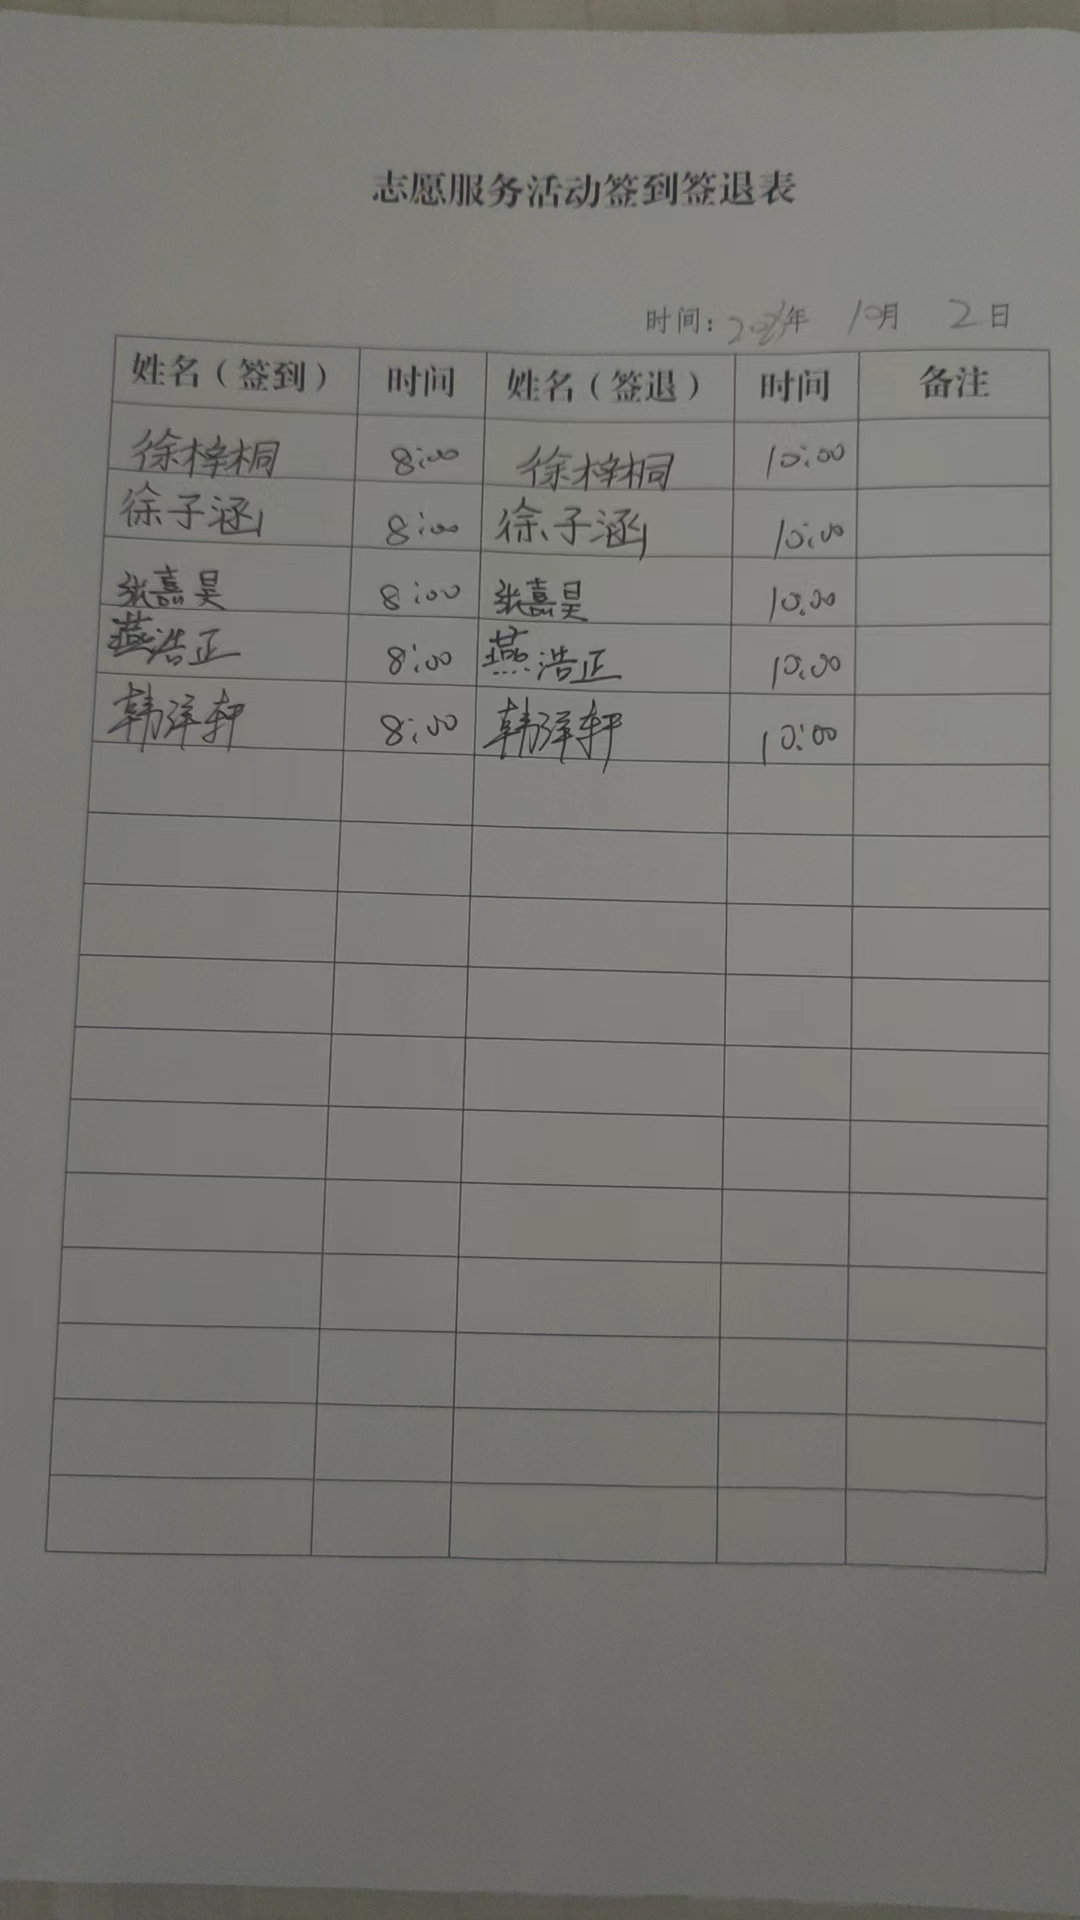 志愿服务活动签到签退表
时间: 年 10月 2日
姓名（签到） 时间 姓名（签退） 时间 备注
徐梓桐 8:00 徐梓桐 10:00
徐子涵 8:00 徐子涵 10:00
张嘉昊 8:00 张嘉昊 10:00
燕浩正 8:00 燕浩正 10:00
韩洋轩 8:00 韩洋轩 10:00